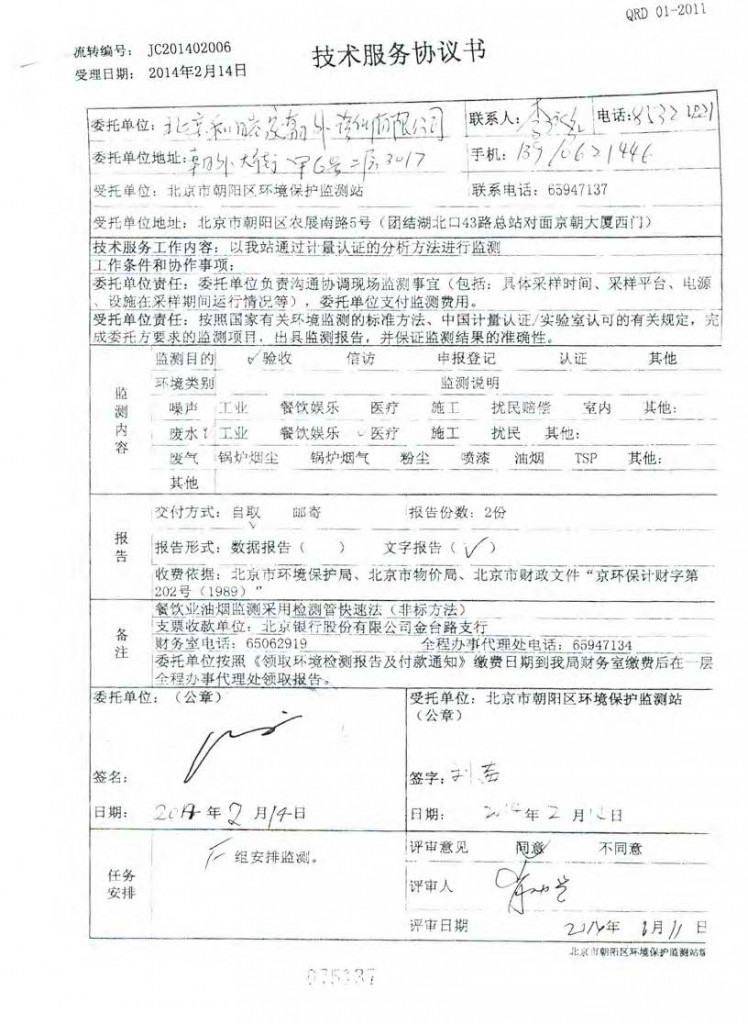 QRD 01-2011
流转编号： JC201402006
受理日期： 2014年2月14日
技术服务协议书
委托单位： 北京 有限公司 联系人： 电话：
委托单位地址：朝外大街甲6号二层3017 手机：
受托单位：北京市朝阳区环境保护监测站 联系电话：65947137
受托单位地址：北京市朝阳区农展南路5号（团结湖北口43路总站对面京朝大厦西门）
技术服务工作内容：以我站通过计量认证的分析方法进行监测
工作条件和协作事项：
委托单位责任：委托单位负责沟通协调现场监测事宜（包括：具体采样时间、采样平台、电源
、设施在采样期间运行情况等），委托单位支付监测费用。
受托单位责任：按照国家有关环境监测的标准方法、中国计量认证/实验室认可的有关规定，完
成委托方要求的监测项目，出具监测报告，并保证监测结果的准确性。
监测内容
监测目的 ✓验收 信访 申报登记 认证 其他
环境类别 监测说明
噪声 工业 餐饮娱乐 医疗 施工 扰民赔偿 室内 其他：
废水 工业 餐饮娱乐 ✓医疗 施工 扰民 其他：
废气 锅炉烟尘 锅炉烟气 粉尘 喷漆 油烟 TSP 其他：
其他
报告
交付方式：自取 邮寄 报告份数：2份
✓
报告形式：数据报告（ ） 文字报告（✓）
收费依据：北京市环境保护局、北京市物价局、北京市财政文件“京环保计财字第
202号（1989）”
备注
餐饮业油烟监测采用检测管快速法（非标方法）
支票收款单位：北京银行股份有限公司金台路支行
财务室电话：65062919 全程办事代理处电话：65947134
委托单位按照《领取环境检测报告及付款通知》缴费日期到我局财务室缴费后在一层
全程办事代理处领取报告。
委托单位：（公章） 受托单位：北京市朝阳区环境保护监测站
（公章）
签名： 签字：
日期： 2014年2月14日 日期： 2014年2月 日
任务安排
组安排监测。
评审意见 同意✓ 不同意
评审人
评审日期 2014年 月11日
北京市朝阳区环境保护监测站
075137